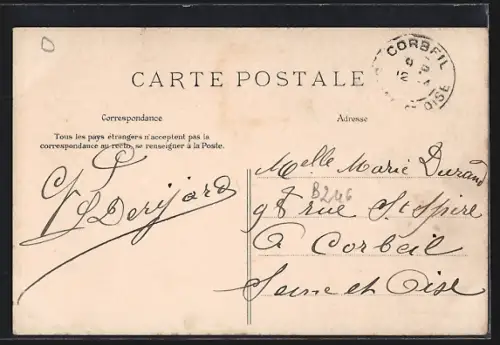 CORBEIL
OISE
CARTE POSTALE
Correspondance
Adresse
Tous les pays étrangers n'acceptent pas la
correspondance au recto, se renseigner à la Poste.
Melle Marie Durand
98 rue St Spire
B246
A Corbeil
Seine et Oise